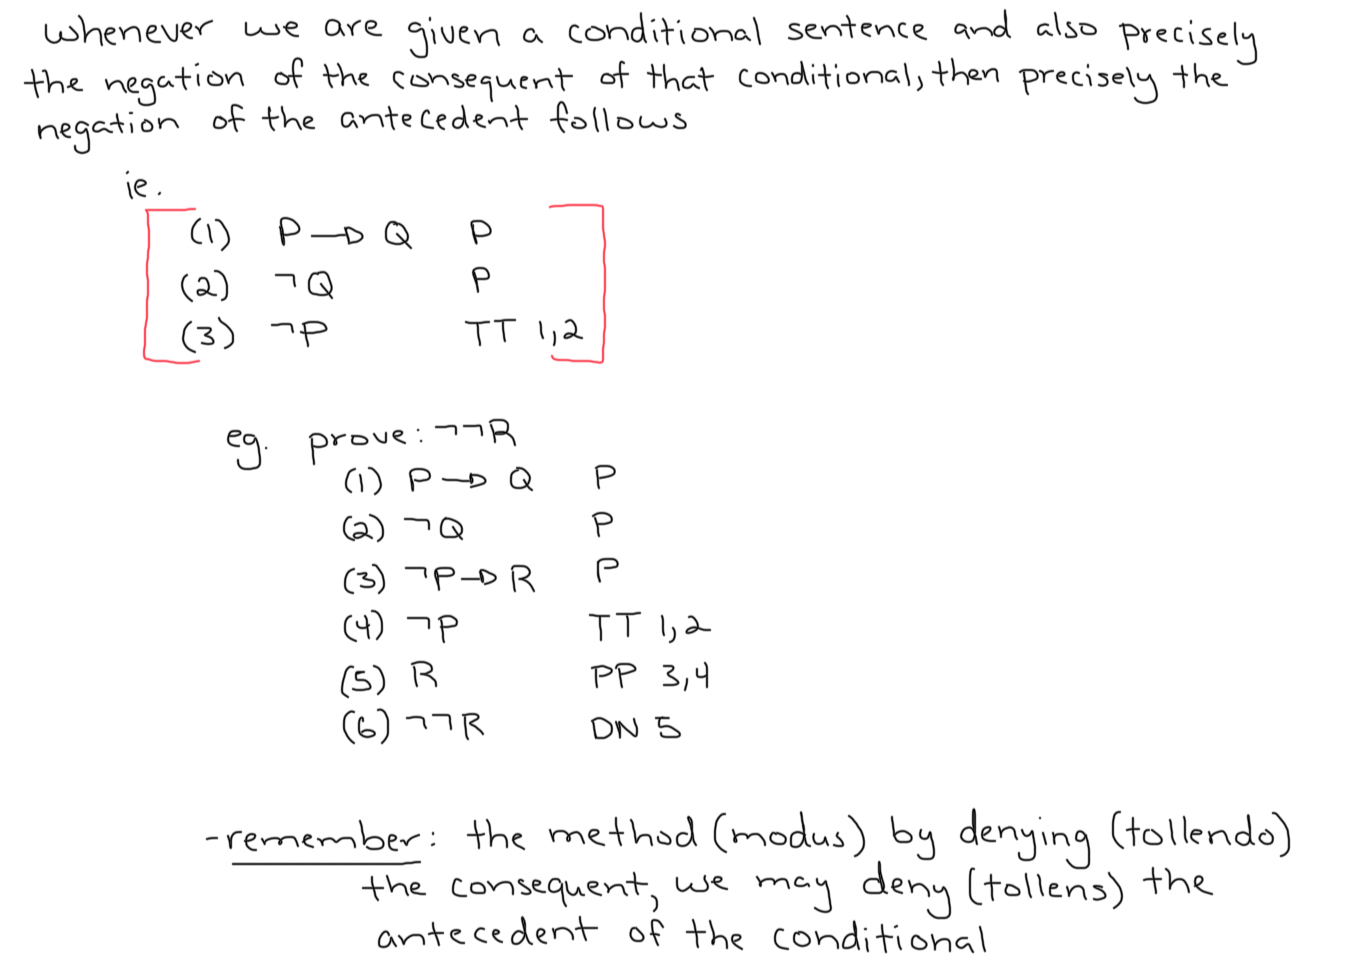 whenever we are given a conditional sentence and also precisely
the negation of the consequent of that conditional, then precisely the
negation of the antecedent follows
ie.
(1) P→Q P
(2) ¬Q P
(3) ¬P TT 1,2
eg. prove: ¬¬R
(1) P→Q P
(2) ¬Q P
(3) ¬P→R P
(4) ¬P TT 1,2
(5) R PP 3,4
(6) ¬¬R DN 5
-remember: the method (modus) by denying (tollendo)
the consequent, we may deny (tollens) the
antecedent of the conditional